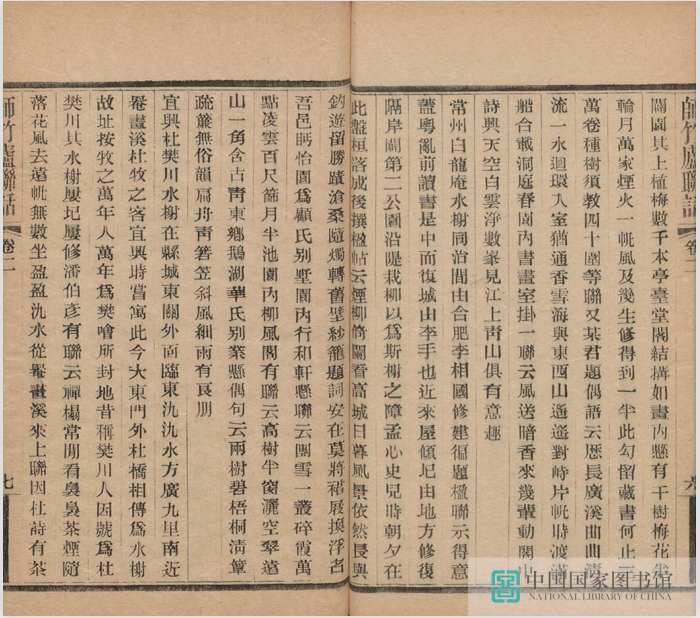 關園其上植梅數千本亭臺堂閣結搆如畫內懸有干樹梅花半
輪月萬家煙火一帆風及幾生修得到一半此勾留藏書何止三
萬卷種樹須教四十圍等聯又某君題偶語云歷長廣溪曲曲清
流一水迴環入室猶通香雪海與東西山遙遙對峙片帆時渡滿
船合載洞庭春園內書畫室掛一聯云風送暗香來幾輩動閣中
詩興天空白雲淨數峯見江上靑山俱有意趣
常州白龍庵水榭同治間由合肥李相國修建徧題楹聯示得意
蓋粵亂前讀書是中而復城由李手也近來屋傾圮由地方修復
隔岸闢第二公園沿隄栽柳以爲斯榭之障孟心史兄時朝夕在
此盤桓落成後撰楹帖云煙柳倚闌看高城日暮風景依然長與
釣遊留勝蹟滄桑隨燭轉舊壁紗籠題詞安在莫將裙屐換浮名
吾邑眄怡園爲顧氏别墅園內行和軒懸聯云團雪一叢碎霞萬
點凌雲百尺篩月半池園內柳風閣有聯云高樹半簡灑空翠遠
山一角含古靑東鄉鵝湖華氏別業懸偶句云兩樹碧梧桐淸簟
疏簾無俗韻扁舟靑箬笠斜風細雨有良朋
宜興杜樊川水榭在縣城東關外面臨東氿氿水方廣九里南近
罨畫溪杜牧之客宜興時嘗寓此今大東門外杜橋相傳爲水榭
故址按牧之萬年人萬年爲樊噲所封地昔稱樊川人因號爲杜
樊川其水榭屢圮屢修潘伯彥有聯云禪榻常閒看裊裊茶煙隨
落花風去遠帆無數坐盈盈氿水從罨畫溪來上聯因杜詩有茶
師竹廬聯話
卷二
七
師竹廬聯話
卷二
六
中国国家图书馆
NATIONAL LIBRARY OF CHINA